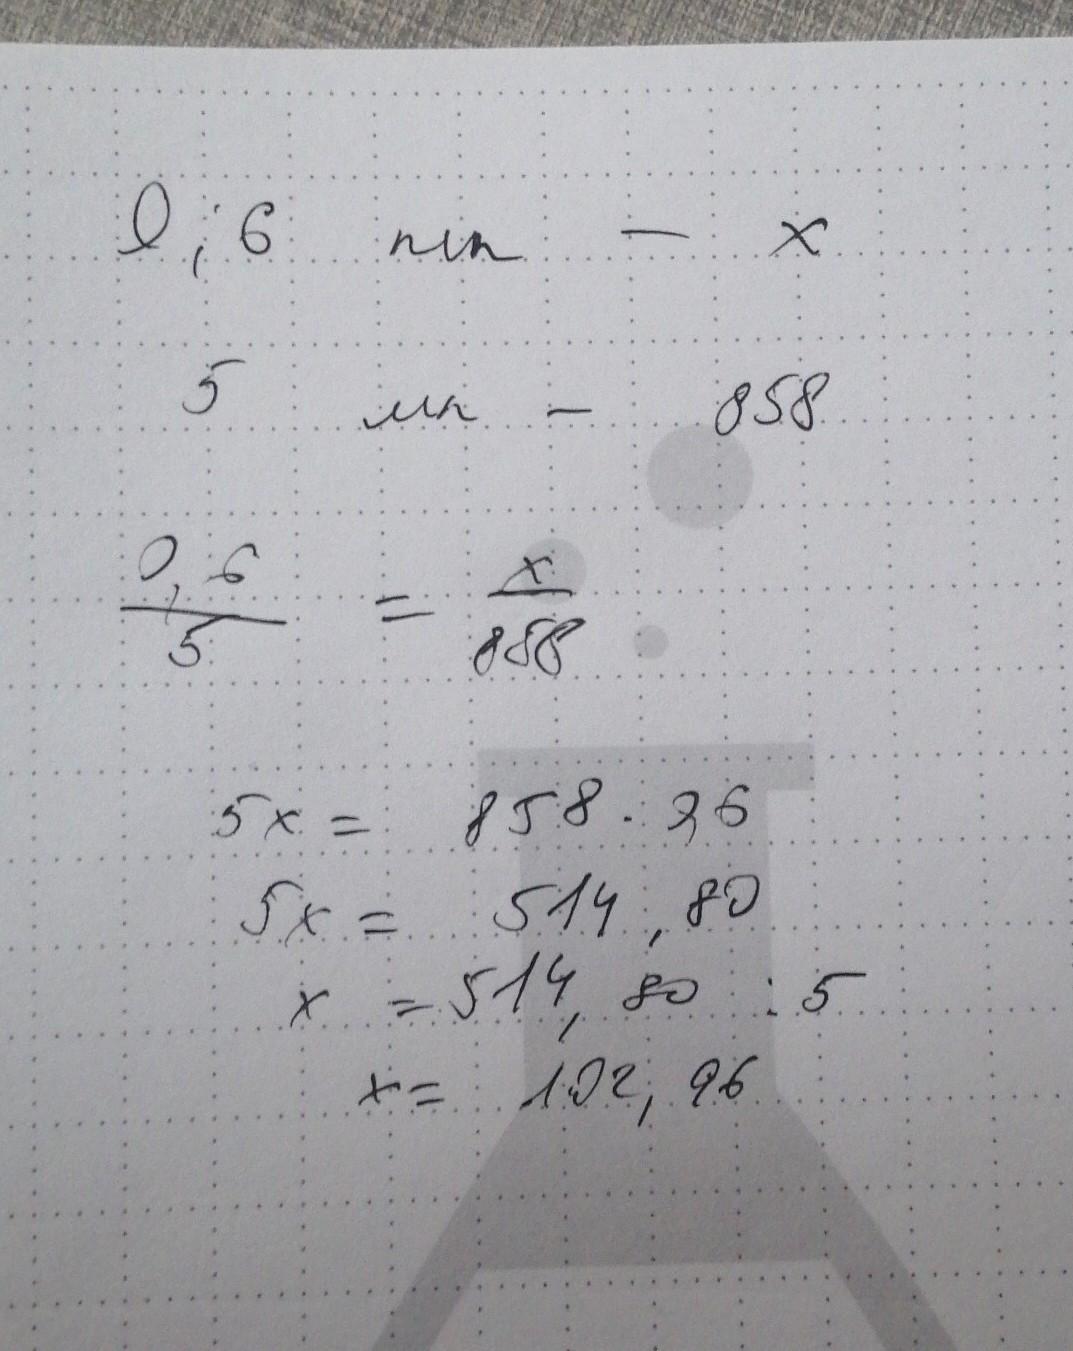 0,6 мл — x
5 мл — 858
0,6/5 = x/858
5x = 858 · 0,6
5x = 514,80
x = 514,80 : 5
x = 102,96